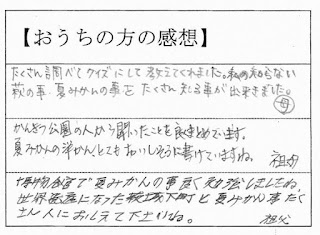 【おうちの方の感想】
たくさん調べてクイズにして教えてくれました。私の知らない
萩の事、夏みかんの事をたくさん知る事が出来ました。
母
かんきつ公園の人から聞いたことを良くまとめています。
夏みかんの羊かん、とてもおいしそうに書けていますね。 祖母
博物館で夏みかんの事良く勉強しましたね。
世界遺産になった萩城下町と夏みかん事たく
さん人におしえて下さいね。 祖父